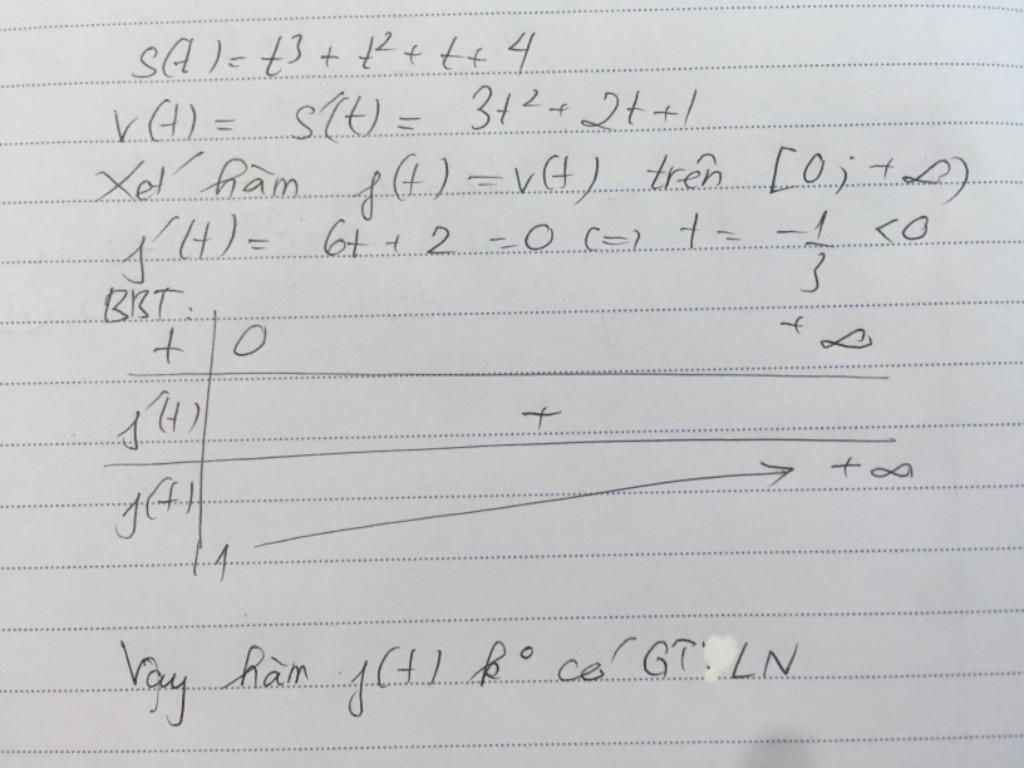 s(t) = t³ + t² + t + 4
v(t) = s'(t) = 3t² + 2t + 1
Xét hàm f(t) = v(t) trên [0; +∞)
f'(t) = 6t + 2 = 0 <=> t = -1/3 < 0
BBT:
t 0 +∞
f'(t) +
f(t) +∞
1
Vậy hàm f(t) k° có GTLN